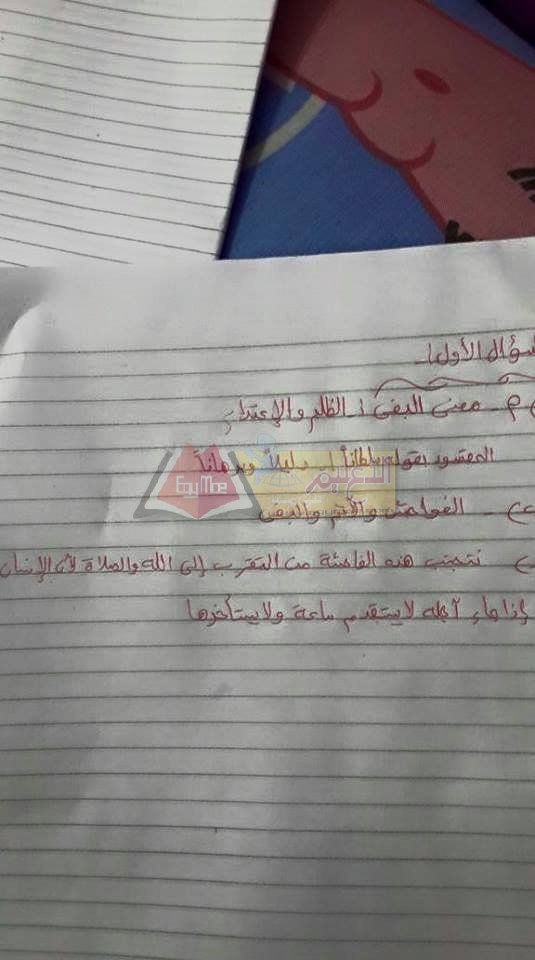 سؤال الأول:-
م- معنى البغى :- الظلم والإعتداء
المقصود بقوله سلطاناً :- دليلاً وبرهاناً
ح)- الفواحش والأثم والبغى
نتجنب هذه الفاحشة من التقرب إلى الله والصلاة لأن الإنسان
إذا جاء آجله لا يستقدم ساعة ولا يستأخرها
EgyThe